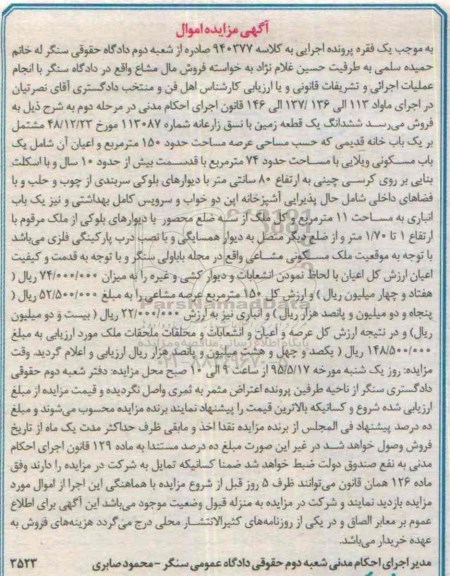 آگهی مزایده اموال
به موجب یک فقره پرونده اجرایی به کلاسه ۹۴۰۳۷۷ صادره از شعبه دوم دادگاه حقوقی سنگر له خانم
حمیده سلمی به طرفیت حسین غلام نژاد به خواسته فروش مال مشاع واقع در دادگاه سنگر با انجام
عملیات اجرائی و تشریفات قانونی و یا ارزیابی کارشناس اهل فن و منتخب دادگستری آقای نصرتیان
در اجرای ماواد ۱۱۳ الی ۱۳۶ /۱۳۷ الی ۱۴۶ قانون اجرای احکام مدنی در مرحله دوم به شرح ذیل به
فروش می‌رسد ششدانگ یک قطعه زمین با نسق زارعانه شماره ۱۱۳۰۸۷ مورخ ۴۸/۱۲/۲۳ مشتمل
بر یک باب خانه قدیمی که حسب مساحی عرصه مساحت حدود ۱۵۰ مترمربع و اعیان آن شامل یک
باب مسکونی ویلایی با مساحت حدود ۷۴ مترمربع با قدمت بیش از حدود ۱۰ سال و با اسکلت
بنایی بر روی کرسی چینی به ارتفاع ۸۰ سانتی متر با دیوارهای بلوکی سربندی از چوب و حلب و با
فضاهای داخلی شامل حال پذیرایی آشپزخانه اپن دو خواب و سرویس کامل بهداشتی و نیز یک باب
انباری به مساحت ۱۱ مترمربع و کل ملک از سه ضلع محصور با دیوارهای بلوکی از ملک مرقوم با
ارتفاع ۱ تا ۱/۷۰ متر و از ضلع دیگر متصل به دیوار همسایگی و با نصب درب پارکینگی فلزی می‌باشد
با توجه به موقعیت ملک مسکونی مشاعی واقع در محله باباولی سنگر و با توجه به قدمت و کیفیت
اعیان ارزش کل اعیان با لحاظ نمودن انشعابات و دیوار کشی و غیره را به میزان ۷۴/۰۰۰/۰۰۰ ریال (
هفتاد و چهار میلیون ریال ) و ارزش کل ۱۵۰ مترمربع عرصه مشاعی را به مبلغ ۵۲/۵۰۰/۰۰۰ ریال (
پنجاه و دو میلیون و پانصد هزار ریال ) و انباری نیز به ارزش ۲۲/۰۰۰/۰۰۰ ریال ( بیست و دو میلیون
ریال) و در نتیجه ارزش کل عرصه و اعیان و انشعابات و محلقات ملحقات ملک مورد ارزیابی به مبلغ
۱۴۸/۵۰۰/۰۰۰ ریال ( یکصد و چهل و هشت میلیون و پانصد هزار ریال ارزیابی و اعلام گردید. وقت
مزایده: روز یک شنبه مورخه ۹۵/۵/۱۷ از ساعت ۹ الی ۱۰ صبح محل مزایده: دفتر شعبه دوم حقوقی
دادگستری سنگر از ناحیه طرفین پرونده اعتراض مثمر به ثمری واصل نگردیده و قیمت مزایده از مبلغ
ارزیابی شده شروع و کسانیکه بالاترین قیمت را پیشنهاد نمایند برنده مزایده محسوب می‌شوند و مبلغ
ده درصد پیشنهاد فی المجلس از برنده مزایده نقدا اخذ و مابقی ظرف حداکثر مدت یک ماه از تاریخ
فروش وصول خواهد شد در غیر این صورت مبلغ ده درصد مستندا به ماده ۱۲۹ قانون اجرای احکام
مدنی به نفع صندوق دولت ضبط خواهد شد ضمنا کسانیکه تمایل به شرکت در مزایده را دارند وفق
ماده ۱۲۶ همان قانون می‌توانند ظرف ۵ روز قبل از شروع مزایده با هماهنگی این اجرا از اموال مورد
مزایده بازدید نمایند و شرکت در مزایده به منزله قبول وضعیت موجود می‌باشد این آگهی برای اطلاع
عموم بر معابر الصاق و در یکی از روزنامه‌های کثیرالانتشار محلی درج می‌گردد هزینه‌های فروش به
عهده خریدار می‌باشد.
مدیر اجرای احکام مدنی شعبه دوم حقوقی دادگاه عمومی سنگر - محمود صابری ۳۵۲۳